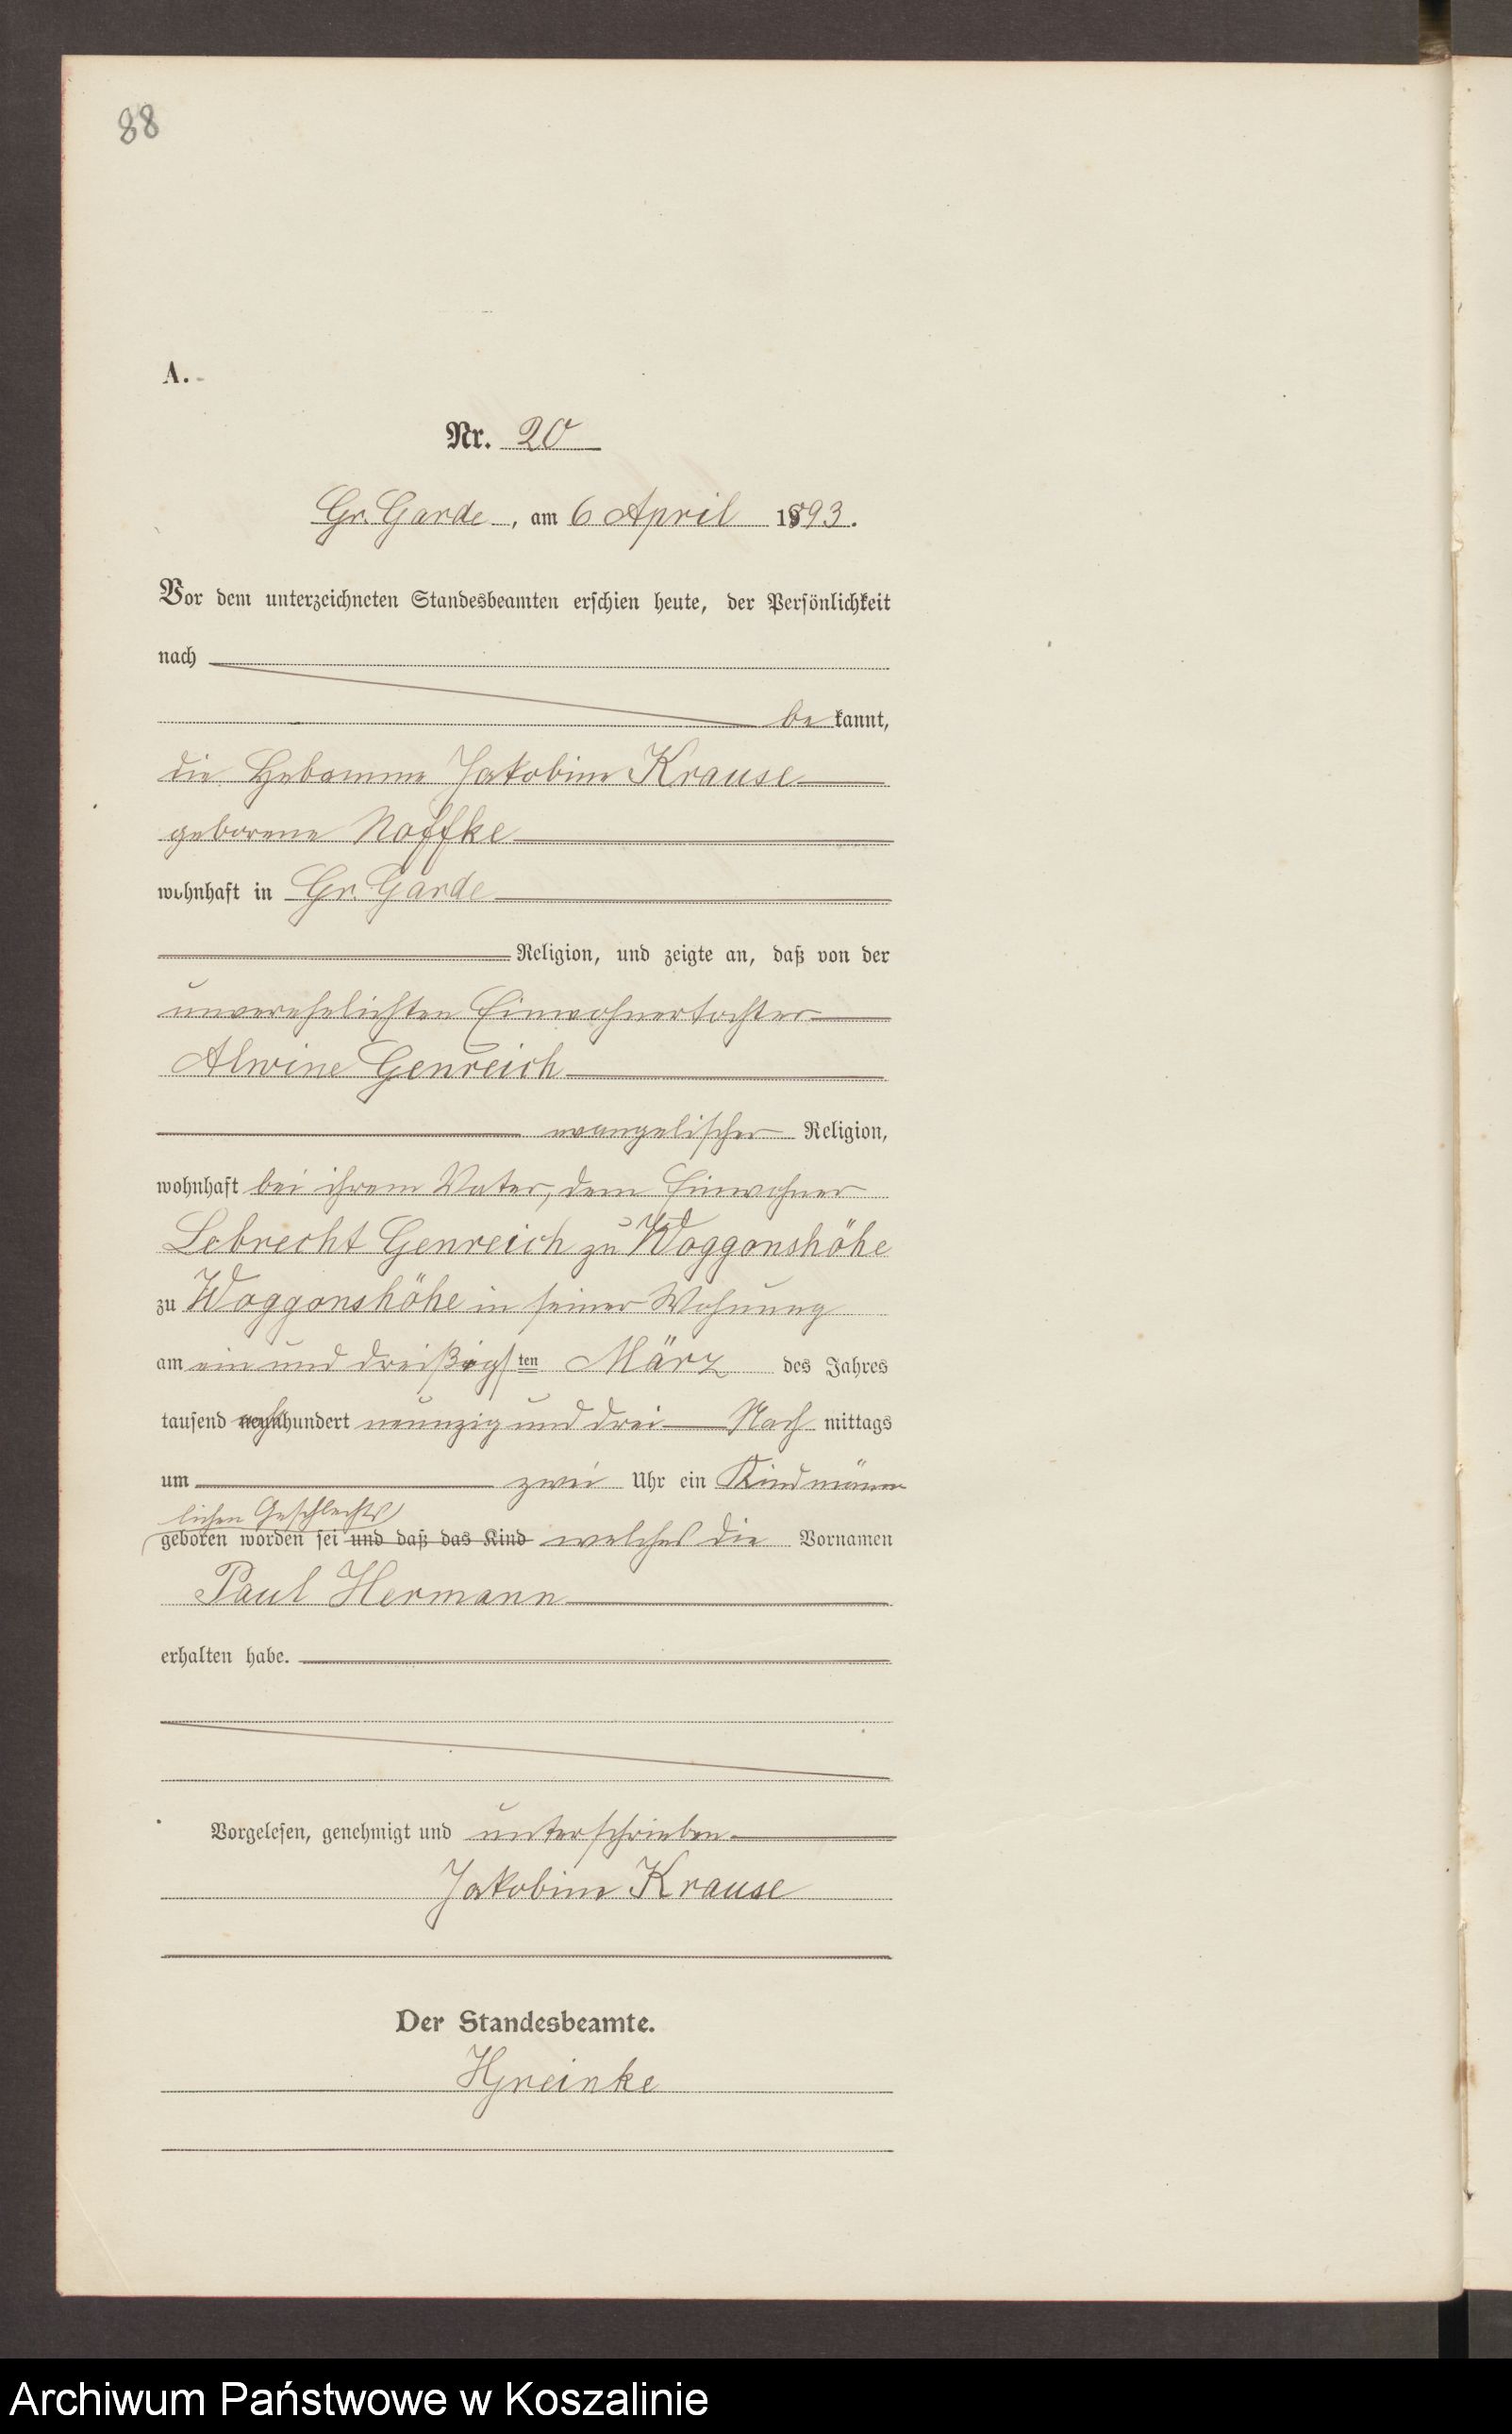 88
A.
Nr. 20
Gr. Garde, am 6 April 1893.
Vor dem unterzeichneten Standesbeamten erschien heute, der Persönlichkeit
nach
be kannt,
die Hebamme Jakobine Krause
geborene Noffke
wohnhaft in Gr. Garde
Religion, und zeigte an, daß von der
unverehelichten Einwohnertochter
Alwine Genreich
evangelischer Religion,
wohnhaft bei ihrem Vater, dem Einwohner
Lebrecht Genreich zu Woggonshöhe
zu Woggonshöhe in seiner Wohnung
am ein und dreißigsten März des Jahres
tausend achthundert neunzig und drei Nach mittags
um zwei Uhr ein Kind männ
lichen Geschlechts
geboren worden sei und daß das Kind welches die Vornamen
Paul Hermann
erhalten habe.
Vorgelesen, genehmigt und unterschrieben
Jakobine Krause
Der Standesbeamte.
HGreinke
Archiwum Państwowe w Koszalinie